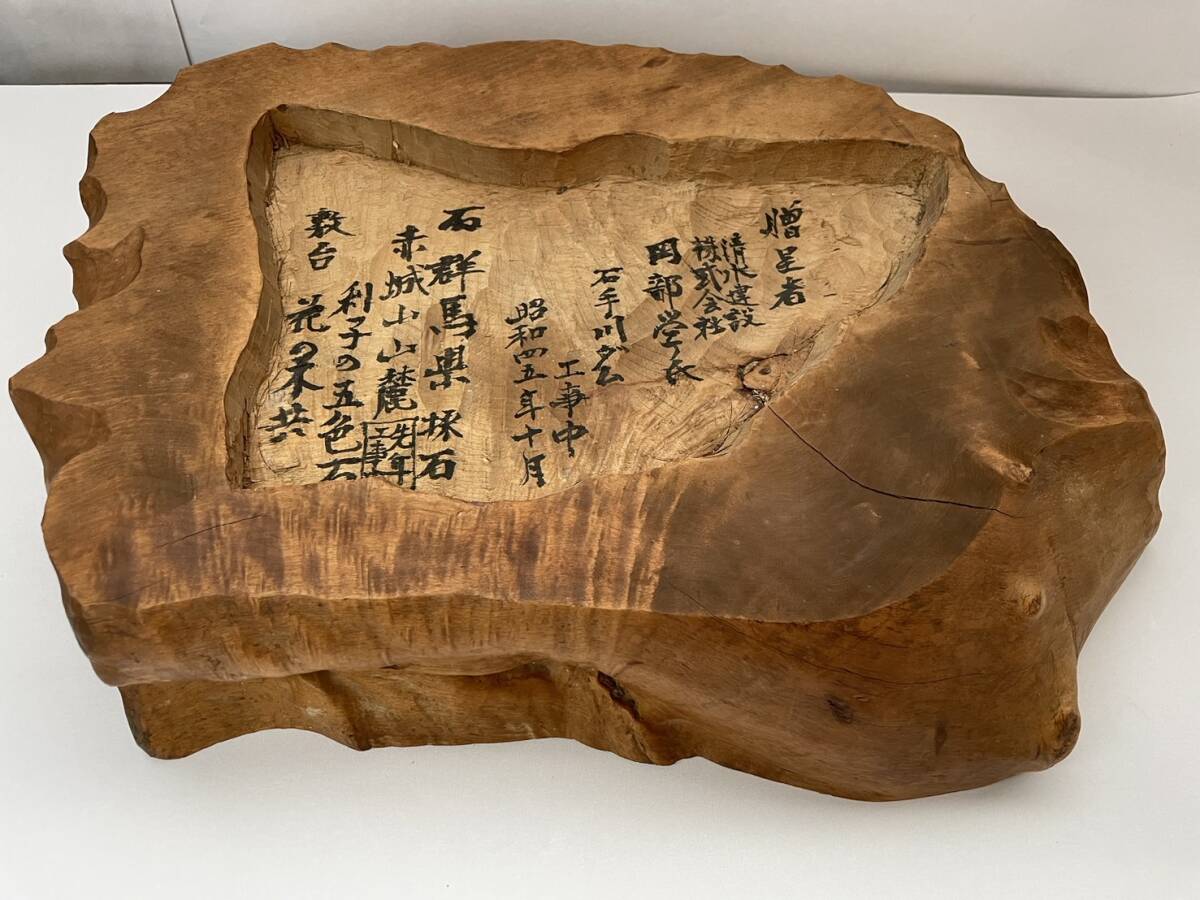 贈呈者
清水建設
株式会社
岡部営氏
石手川ダム
工事中
昭和四五年十月
石群馬県採石
赤城山山麓
先年
工事
利子の五色石
敷台
花の木共